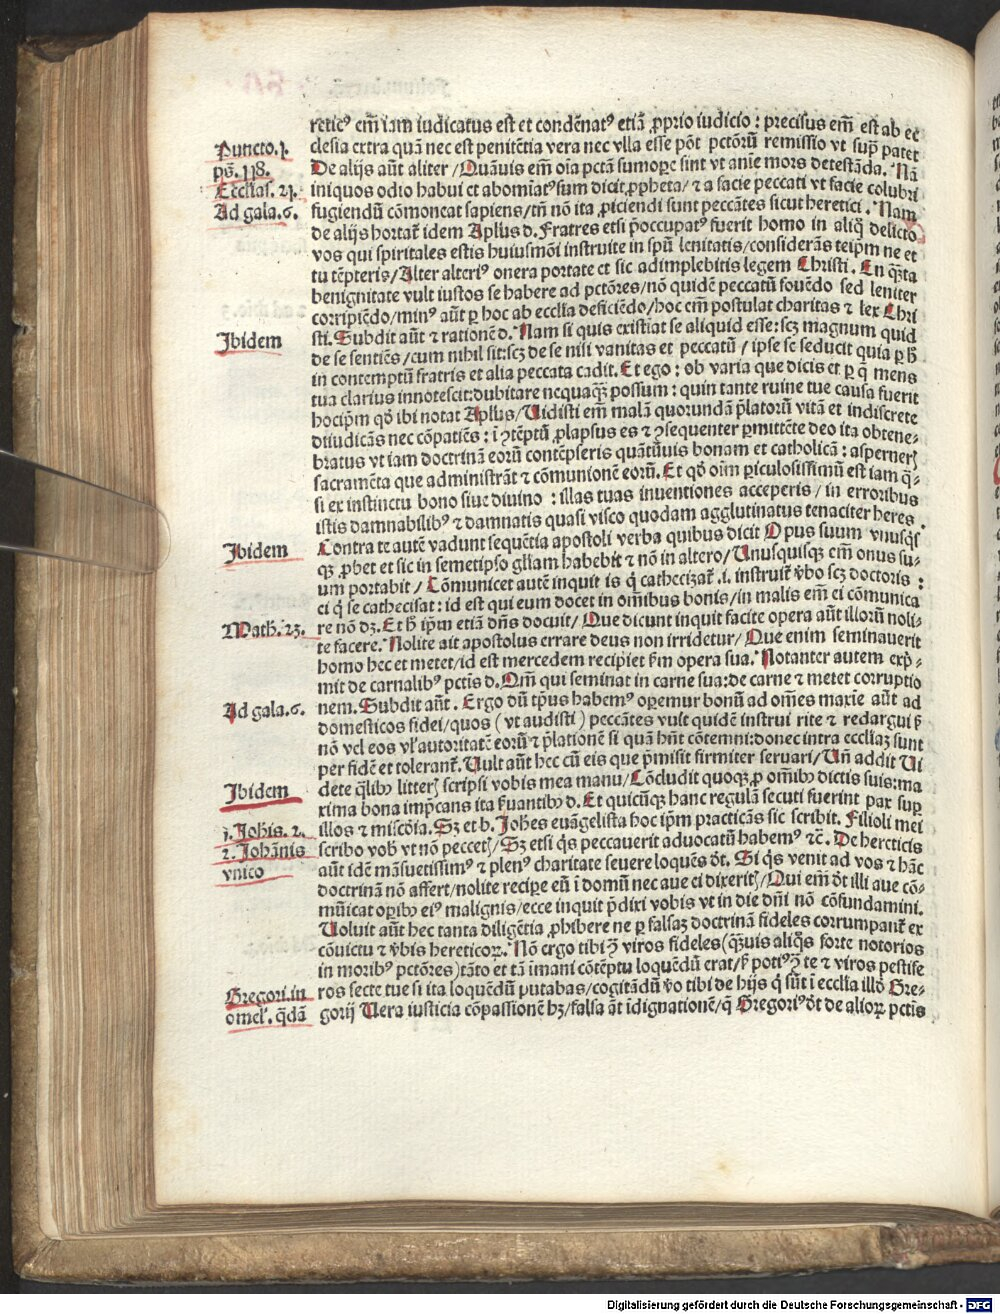 reticꝰ em̄ iam iudicatus est et condēnatꝰ etiā ꝓprio iudicio : precisus em̄ est ab ec
Puncto.j.
clesia extra quā nec est penitētia vera nec vlla esse pōt pctōrū remissio vt supͣ patet
ps̄. 118.
De alijs aūt aliter / Quāuis em̄ oīa pctā sumoꝑe sint vt anīe mors detestāda. Nā
Ecclias. 21.
iniquos odio habui et abomiatꝰ sum dicit ꝓpheta / ⁊ a facie peccati vt facie colubri
Ad gala. 6.
fugiendū cōmoneat sapiens / tn̄ nō ita ꝓiciendi sunt peccātes sicut heretici. Nam
de alijs hortat̄ idem Aplus d. Fratres etsi p̄occupatꝰ fuerit homo in aliqͦ delicto
vos qui spiritales estis huiusmōi instruite in spū lenitatis / considerās teip̄m ne et
tu tēpteris / Alter alteriꝰ onera portate et sic adimplebitis legem Christi. En qͣta
benignitate vult iustos se habere ad pctōres / nō quidē peccatū fouēdo sed leniter
corripiēdo / minꝰ aūt ꝑ hoc ab ecclia deficiēdo / hoc em̄ postulat charitas ⁊ lex Chri
Ibidem
sti. Subdit aūt ⁊ rationē d. Nam si quis existiat se aliquid esse : scꝫ magnum quid
de se sentiēs / cum nihil sit : scꝫ de se nisi vanitas et peccatū / ipse se seducit quia ꝑ h̄
in contemptū fratris et alia peccata cadit. Et ego : ob varia que dicis et ꝑ qͣ mens
tua clarius innotescit : dubitare nequaqͣꝫ possum : quin tante ruine tue causa fuerit
hocip̄m qd̄ ibi notat Aplus / Uidisti em̄ malā quorundā p̄latorū vitā et indiscrete
diiudicās nec cōpatiēs : ī ↄtēptū ꝓlapsus es ⁊ ↄsequenter ꝑmittēte deo ita obtene⸗
bratus vt iam doctrinā eorū contēpseris quātūuis bonam et catholicā : asperneꝝ
sacramēta que administrāt ⁊ cōmunionē eorū. Et qd̄ oīm ꝑiculosissimū est iam qͣ⸗
si ex instinctu bono siue diuino : illas tuas inuentiones acceperis / in erroribus
istis damnabilibꝰ ⁊ damnatis quasi visco quodam agglutinatus tenaciter heres.
Ibidem
Contra te autē vadunt sequētia apostoli verba quibus dicit Opus suum vnusqͥs
qꝫ ꝓbet et sic in semetipso gl̄iam habebit ⁊ nō in altero / Unusquisqꝫ em̄ onus su⸗
um portabit / Cōmunicet autē inquit is qͥ cathecizat̄ .i. instruit̄ v̄bo scꝫ doctoris :
ei qͥ se cathecisat : id est qui eum docet in om̄ibus bonis / in malis em̄ ei cōmunica
Math. 23.
re nō dꝫ. Et h̄ ip̄m etiā dn̄s docuit / Que dicunt inquit facite opera aūt illorū noli⸗
te facere. Nolite ait apostolus errare deus non irridetur / Que enim seminauerit
homo hec et metet / id est mercedem recipiet ẜm opera sua. Notanter autem expͥ⸗
mit de carnalibꝰ pctīs d. Qm̄ qui seminat in carne sua : de carne ⁊ metet corruptio
Ad gala. 6.
nem. Subdit aūt. Ergo dū tp̄us habemꝰ operemur bonū ad om̄es maxie aūt ad
domesticos fidei / quos ( vt audisti ) peccātes vult quidē instrui rite ⁊ redargui ẜ
nō vel eos vl̓ autoritatē eorū ⁊ p̄lationē si quā hn̄t cōtemni : donec intra eccliaꝫ sunt
per fidē et tolerant̄. Uult aūt hec cū eis que p̄misit firmiter seruari / Un̄ addit Ui
Ibidem
dete qͣlibꝰ litteꝝ scripsi vobis mea manu / Cōcludit quoqꝫ ꝓ om̄ibꝰ dictis suis : ma
xima bona imp̄cans ita ẜuantibꝰ d. Et quicūqꝫ hanc regulā secuti fuerint pax suꝑ
j. Johis. 2.
illos ⁊ miscōia. Sꝫ et b. Johēs euāgelista hoc ip̄m practicās sic scribit. Filioli mei
2. Johānis
scribo vob̄ vt nō peccetꝭ / Sꝫ etsi qͥs peccauerit aduocatū habemꝰ ⁊c̄. De hereticis
vnico
aūt idē māsuetissimꝰ ⁊ plenꝰ charitate seuere loquēs dt̄. Si qͥs venit ad vos ⁊ hāc
doctrinā nō affert / nolite recipe eū ī domū nec aue ei dixeritꝭ / Qui em̄ dt̄ illi aue cō⸗
mūicat oꝑibꝰ eiꝰ malignis / ecce inquit p̄dixi vobis vt in die dn̄i nō cōfundamini.
Uoluit aūt hec tanta diligētia ꝓhibere ne ꝑ falsaꝫ doctrinā fideles corrumpant̄ ex
cōuictu ⁊ v̄bis hereticoꝝ. Nō ergo tibi ꝯͣ viros fideles (qͣꝫuis aliqͥs forte notorios
in moribꝰ pctōres) tāto et tā imani cōtēptu loquēdū erat / ẜ potiꝰ ꝯͣ te ⁊ viros pestife
Gregori. in
ros secte tue si ita loquēdū putabas / cogitādū v̄o tibi de hijs qͥ sūt ī ecclia illd̄ Gre⸗
omel̓. qͣdā
gorij Uera iusticia cōpassionē hꝫ / falsa āt īdignationē / qͣ Gregoriꝰ dt̄ de alioꝝ pctīs
Digitalisierung gefördert durch die Deutsche Forschungsgemeinschaft - DFG